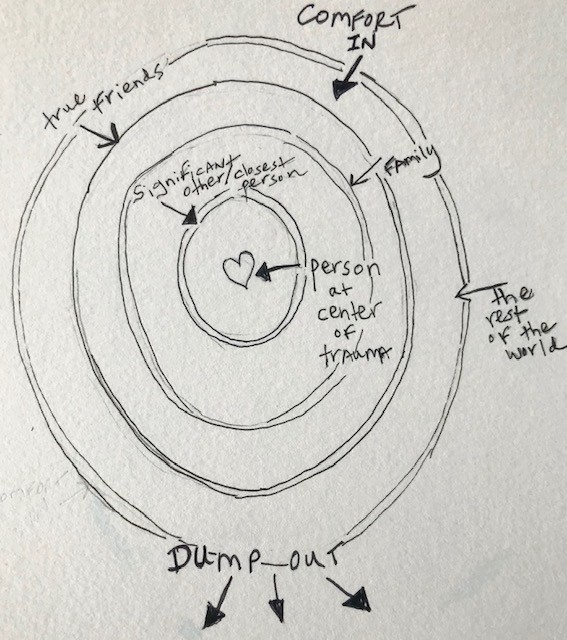 COMFORT
IN
true friends
Significant
other/closest
person
Family
person
at
center
of
trauma
the
rest
of the
world
DUMP OUT